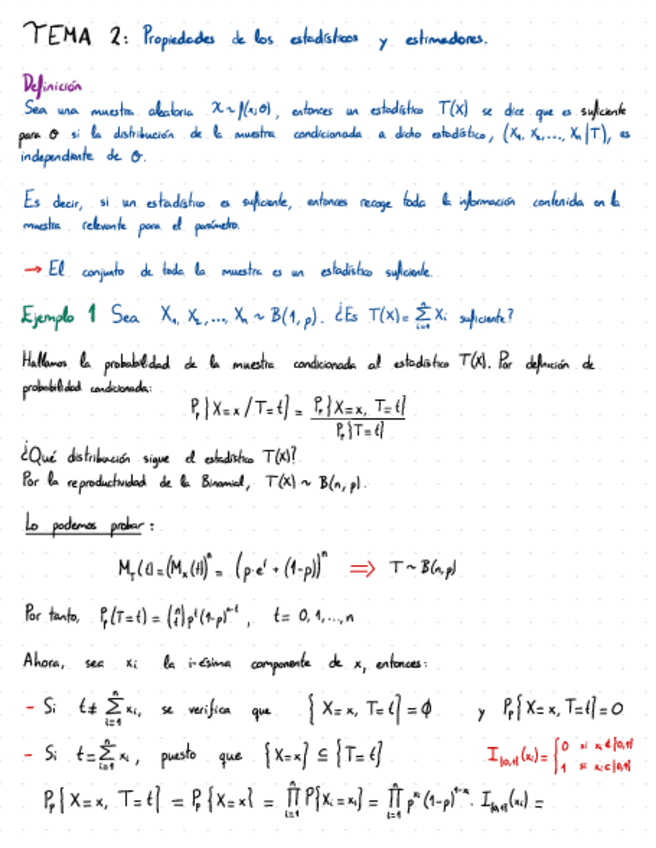 TEMA 2: Propiedades de los estadísticos y estimadores.
Definición
Sea una muestra aleatoria X ~ f(x;θ), entonces un estadístico T(X) se dice que es suficiente
para θ si la distribución de la muestra condicionada a dicho estadístico, (X₁, X₂, ..., Xₙ|T), es
independiente de θ.
Es decir, si un estadístico es suficiente, entonces recoge toda la información contenida en la
muestra relevante para el parámetro.
→ El conjunto de toda la muestra es un estadístico suficiente.
Ejemplo 1 Sea X₁, X₂, ..., Xₙ ~ B(1, p). ¿Es T(X) = ∑ᵢ₌₁ⁿ Xᵢ suficiente?
Hallamos la probabilidad de la muestra condicionada al estadístico T(X). Por definición de
probabilidad condicionada:
Pₚ{X=x / T=t} = Pₚ{X=x, T=t} / Pₚ{T=t}
¿Qué distribución sigue el estadístico T(X)?
Por la reproductividad de la Binomial, T(X) ~ B(n, p).
Lo podemos probar:
M_T(t) = (Mₓ(t))ⁿ = (p·eᵗ + (1-p))ⁿ ⟹ T ~ B(n,p)
Por tanto, Pₚ(T=t) = (n t) pᵗ (1-p)ⁿ⁻ᵗ, t = 0, 1, ..., n
Ahora, sea xᵢ la i-ésima componente de x, entonces:
- Si t ≠ ∑ᵢ₌₁ⁿ xᵢ, se verifica que {X=x, T=t} = ∅ y Pₚ{X=x, T=t} = 0
- Si t = ∑ᵢ₌₁ⁿ xᵢ, puesto que {X=x} ⊆ {T=t} I_{0,1}(xᵢ) = { 0 si xᵢ ∉ {0,1}
1 si xᵢ ∈ {0,1}
Pₚ{X=x, T=t} = Pₚ{X=x} = ∏ᵢ₌₁ⁿ P{Xᵢ=xᵢ} = ∏ᵢ₌₁ⁿ pˣⁱ (1-p)¹⁻ˣⁱ · I_{0,1}(xᵢ) =